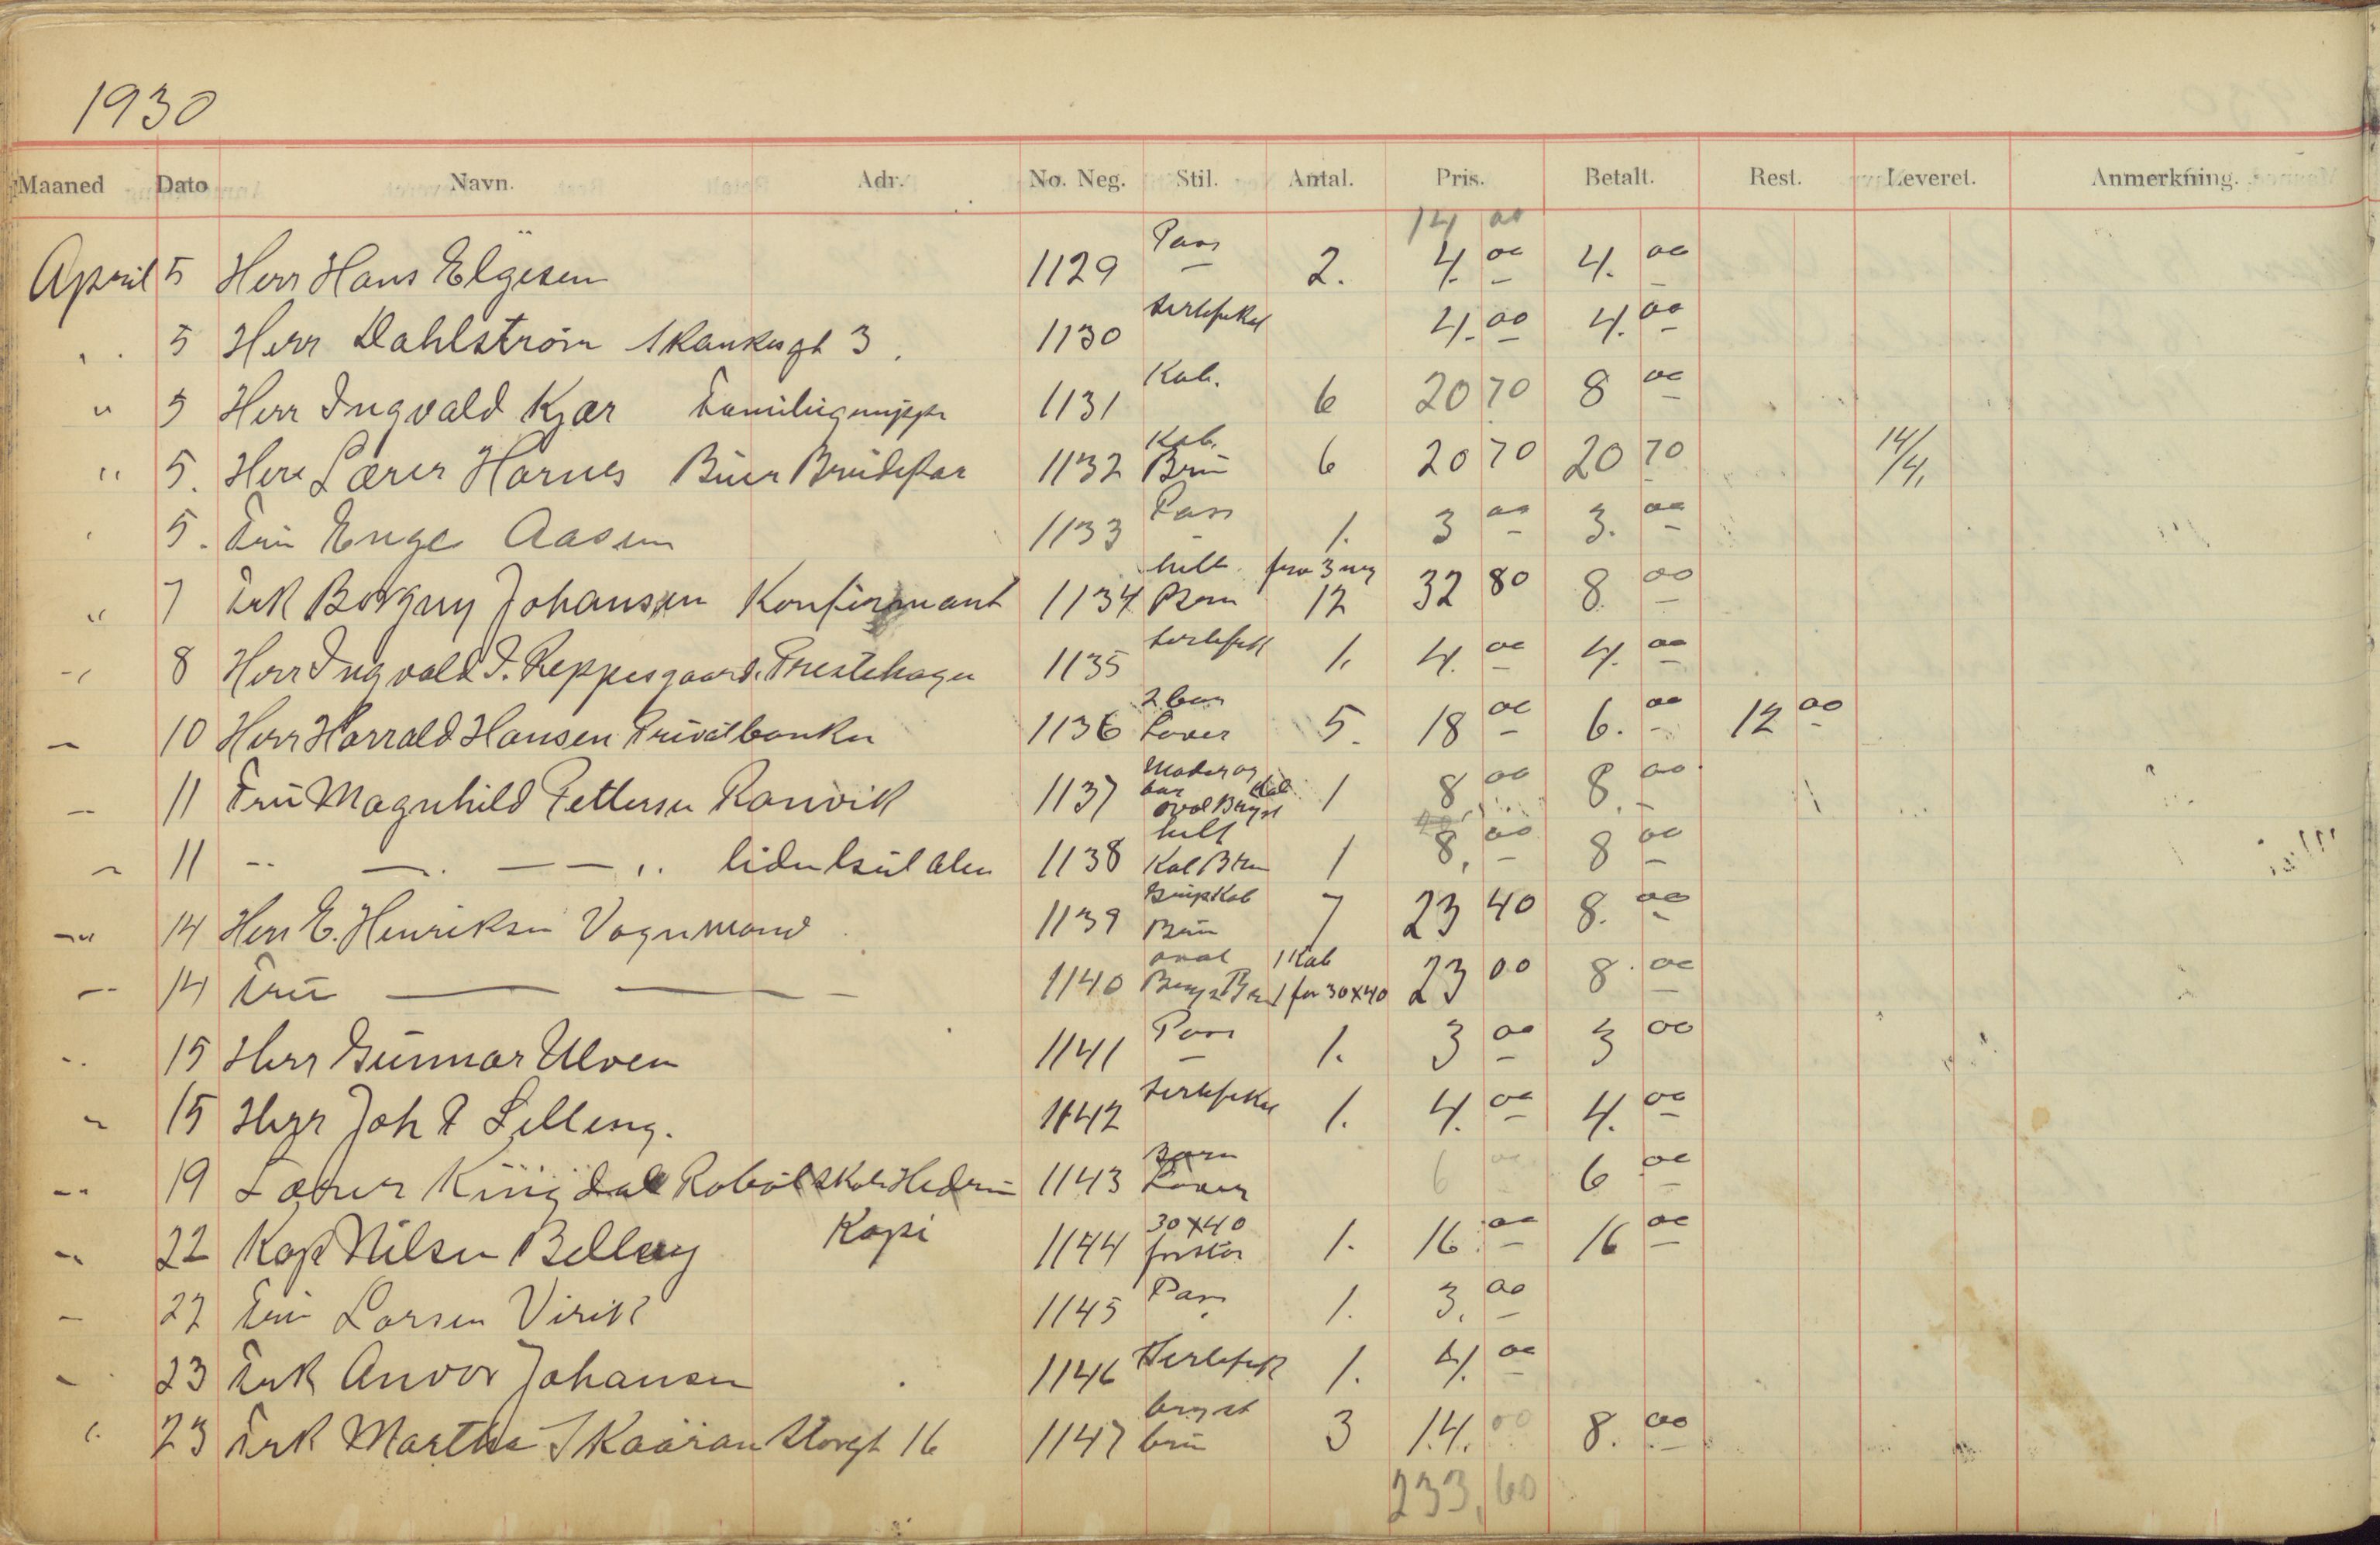 1930
Maaned Dato Navn. Adr. No. Neg. Stil. Antal. Pris. Betalt. Rest. Leveret. Anmerkning.
14 00
April 5 Herr Hans Elgesem 1129 Pass 2. 4. 00 4. 00
" 5 Herr Dahlström Skankesgt 3. 1130 Sertefikat 4. 00 4. 00
" 5 Herr Ingvald Kjær Familiegruppe 1131 Kab. 6 20 70 8 00
" 5. Herr Lærer Harnes Buer Brudepar 1132 Kab. Brun 6 20 70 20 70 14/4.
" 5. Fru Enge Aasen 1133 Pass 1. 3 00 3. 00
" 7 Frk Borgny Johansen Konfirmant 1134 helt Brun fra 3 neg 12 32 80 8. 00
" 8 Herr Ingvald I. Reppesgaard. Prestehagen 1135 Sertefik 1. 4. 00 4. 00
" 10 Herr Harrald Hansen Privatbanken 1136 2 barn 5. 18 00 6. 00 12 00
" 11 Fru Magnhild Pettersen Ranvik 1137 Moder og barn Kab oval Bryst 1 8 00 8. 00
" 11 " — — — " 1138 helt Kab Brun 1 8. 00 8 00
" 14 Herr E. Henriksen Vognmand 1139 Kab Brun 7 23 40 8. 00
" 14 Fru — — — 1140 oval Bryst Brun 1 Kab 1 for 30x40 23 00 8. 00
" 15 Herr Gunnar Ulven 1141 Pass 1. 3 00 3 00
" 15 Herr Joh P Lilleng. 1142 Sertefikat 1. 4. 00 4. 00
" 19 Lærer Ringdal Skole Hedrum 1143 Barn 6 00 6 00
" 22 Kap Nilsen Kopi 1144 30x40 forstør 1. 16. 00 16 00
" 22 Fru Larsen Virik 1145 Pass 1. 3. 00
" 23 Frk Anvor Johansen 1146 Sertefik 1. 4. 00
" 23 Frk Martha Skaaran Storgt 16 1147 bryst brun 3 14. 00 8. 00
233,60